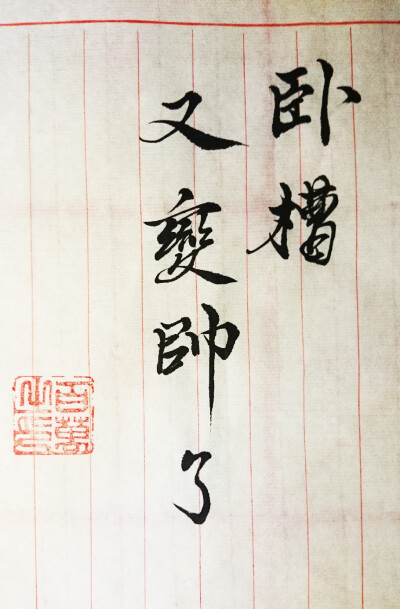 卧槽
又變帥了